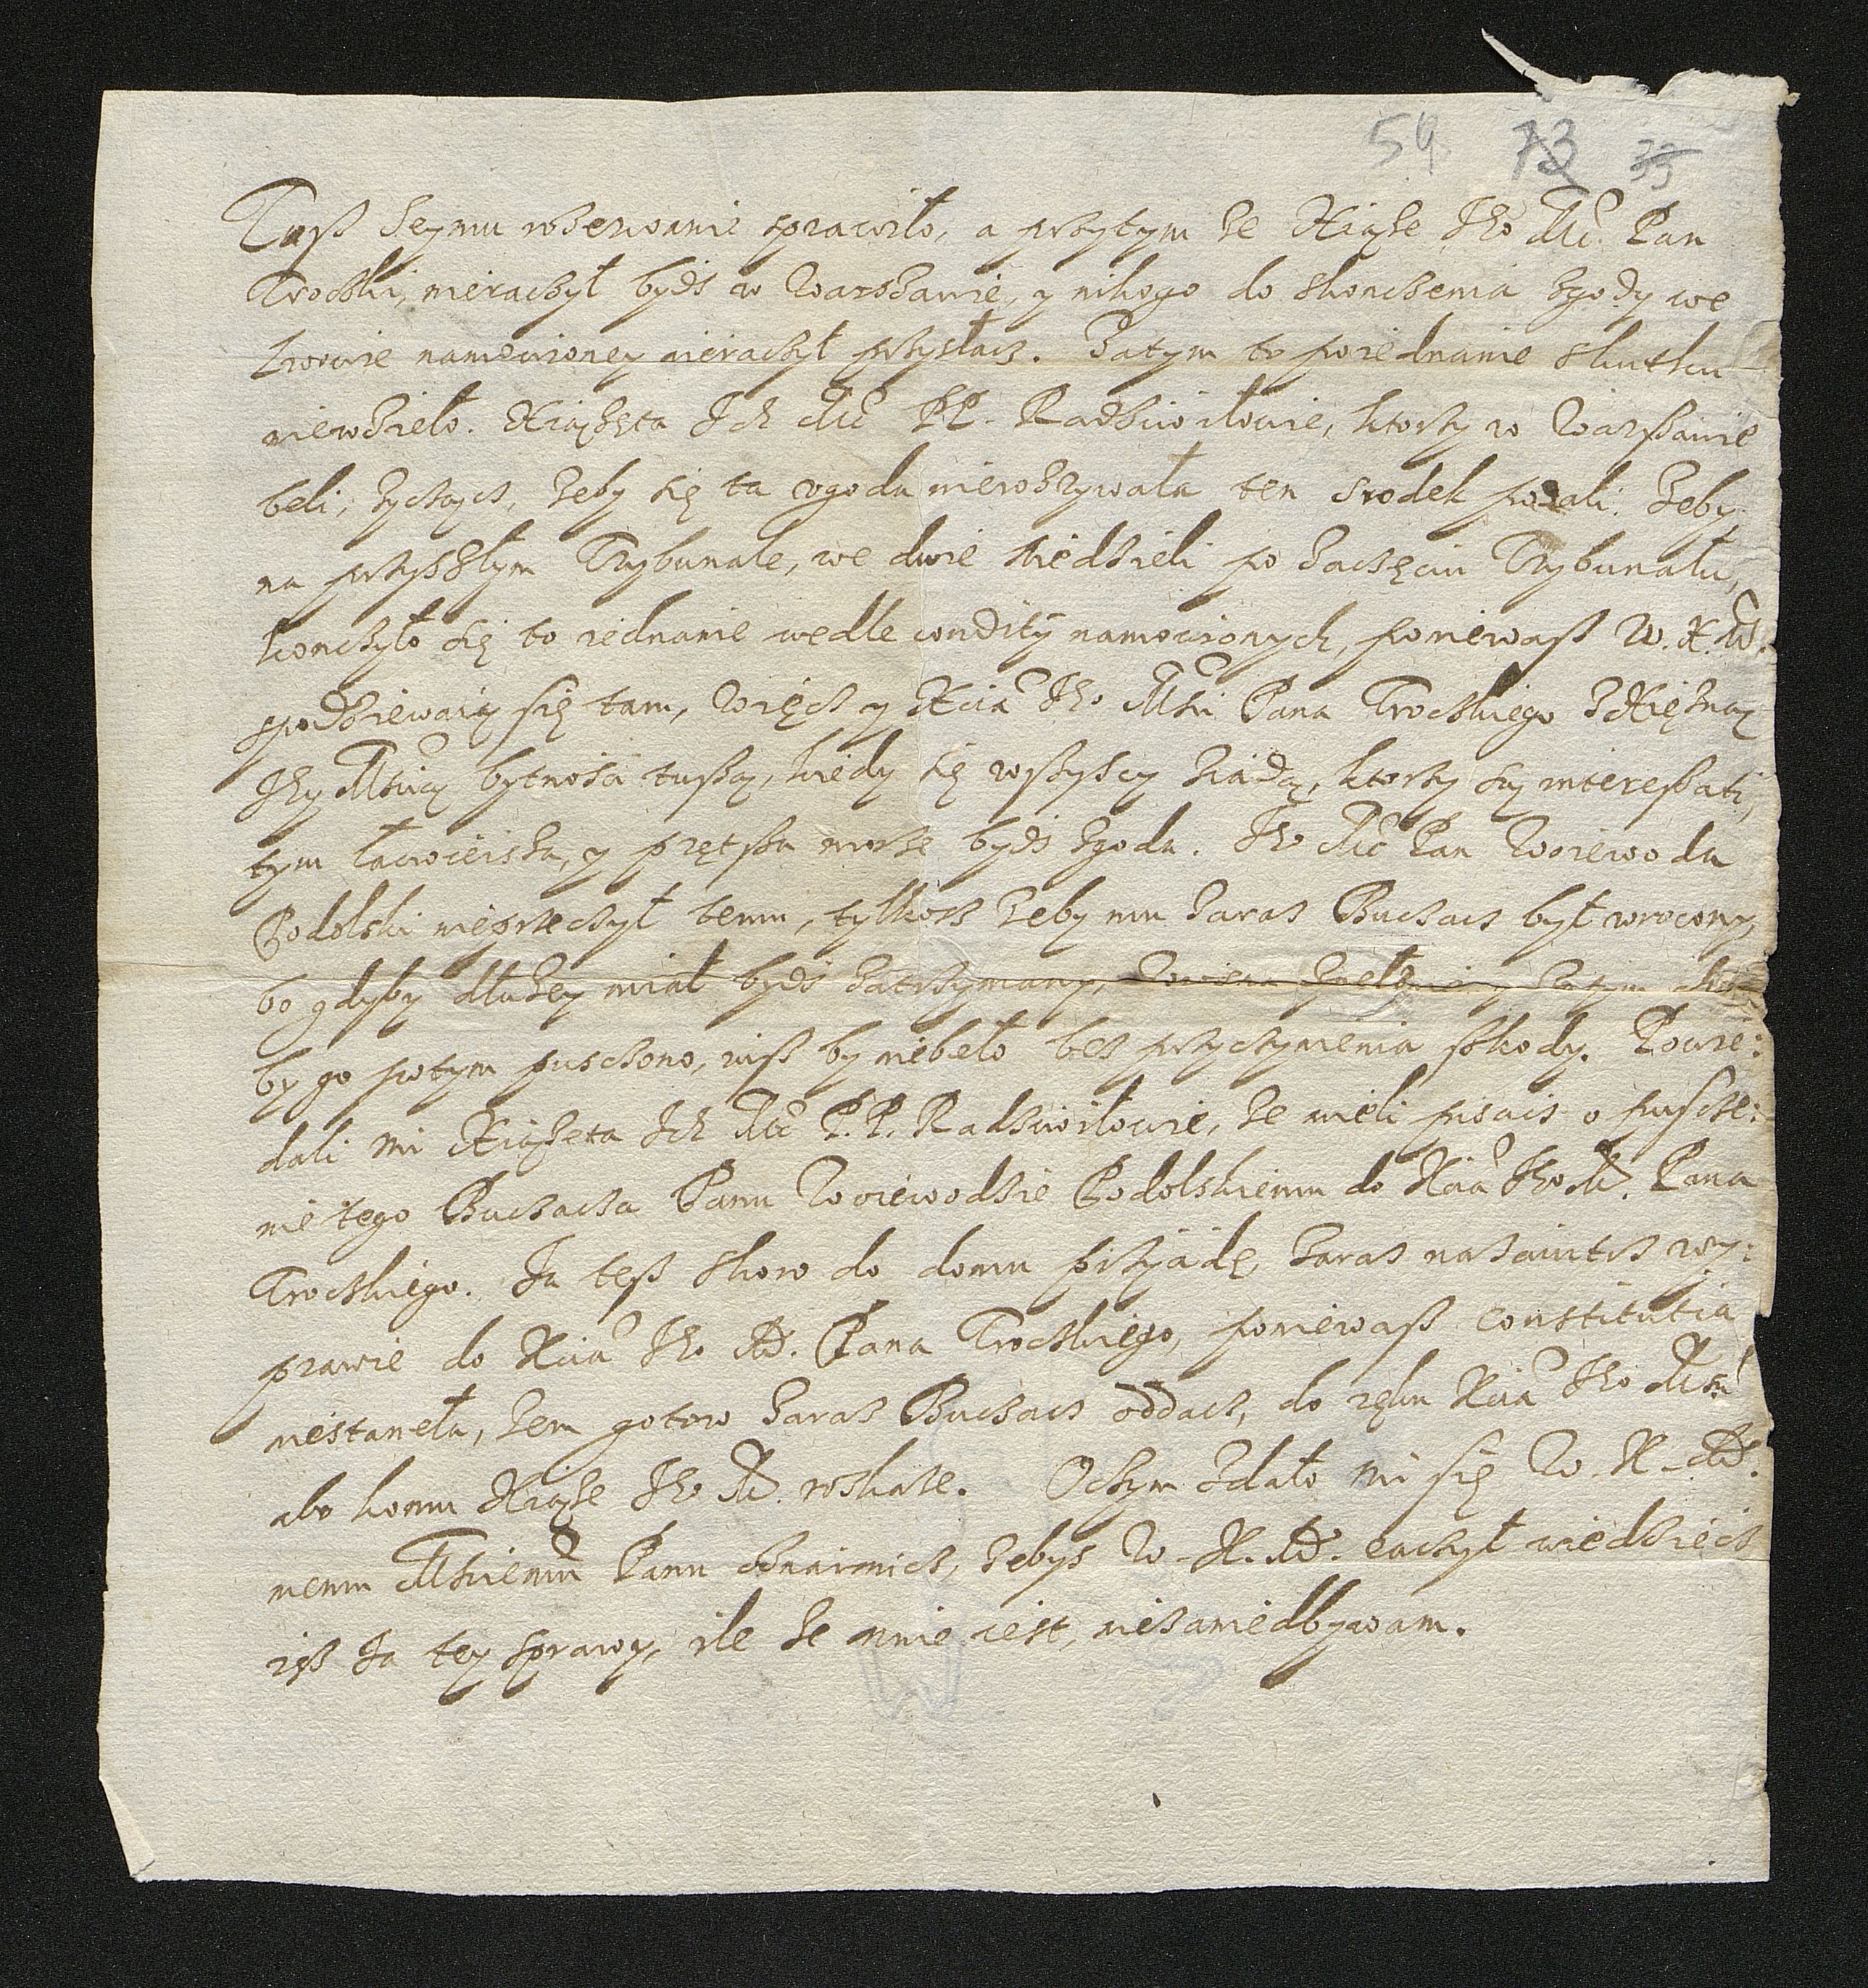 54 73 33
Tuß Seymu rozerwanie sprawiło, a przytym że Xiąże Jho Mć. Pan
Trocki, nieraczył bydź w Warszawie, y nikogo do skonczenia zgody we
Lwowie namowioney nieraczył przysłacz. Zatym to poiednanie skutku
niewzieło. Xiążęta Ich Mć PP. Radziwiłowie, ktorzy w Warßawie
beli, życzącz, żeby się ta vgoda nierozrywała ten srodek podali. Zeby
na przyszłym Trybunale, we dwie niedzieli po zaczęciu Trybunału,
konczyło się to iednanie wedle condity namowionych, poniewaß W. X. M.
spodziewaią się tam, więcz y Xcia Jho Mści Pana Trockiego z Xiężną
Jey Mścią bytnością tußą, kiedy się wßyscy ziadą, ktorzy są intereßati,
tym łacwieisza, y prętßa może bydź zgoda. Jho Mć Pan Woiewoda
Podolski nieprzeczył temu, tylkosz żeby mu zaraz Buczacz był wrocony,
bo gdyby dłużey miał bydź zatrzymany,
by go potym puszczono, iuß by niebeło bez przyczynienia ßkody. Powie:
dali mi Xiążeta Ich Mć P.P. Radziwiłowie, że mieli pisacz o pußcze:
nie tego Buczacza Panu Woiewodzie Podolskiemu do Xcia Jho M. Pana
Trockiego. Ja teß skoro do domu przyjadę, zaraz nazaiutrz wy:
prawie do Xcia Jho M. Pana Trockiego, poniewaß constitutia
niestaneła, żem gotow zaraz Buczacz oddacz, do ręku Xcia Jho Mści
abo komu Xiąże Jho M. roskaże. Oczym zdało mi się W. X. M.
memu Mściemu Panu oznaimicz, żebyś W. X. M. raczył wiedziecz
iß Ja tey sprawy, ile ze mnie iest, niezaniedbywam.